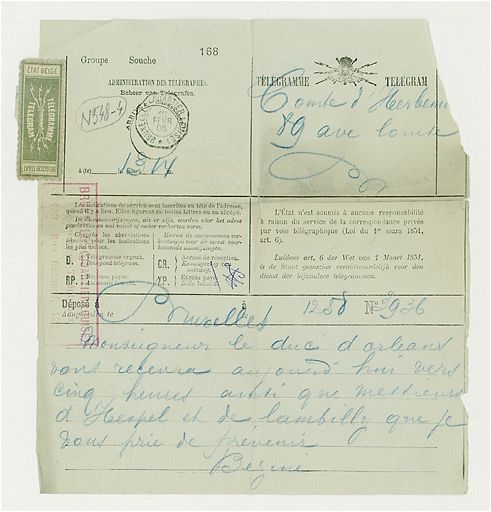 Groupe Souche 168
ADMINISTRATION DES TÉLÉGRAPHES.
Beheer van Telegrafen.
TÉLÉGRAMME TELEGRAM
ÉTAT BELGE
TÉLÉGRAMME
TELEGRAM
N548-4
FEVR
Comte d'
89 ave
Les indications de service sont inscrites en tête de l'adresse,
quand il y a lieu. Elles figurent en toutes lettres ou en abrégé.
Ci-après les abréviations
D. Télégramme urgent.
Dringend telegram.
CR. Accusé de réception.
RP.
XP. Exprès payé.
L'État n'est soumis à aucune responsabilité
à raison du service de la correspondance privée
par voie télégraphique (Loi du 1er mars 1851,
art. 6).
Luidens art. 6 der Wet van 1 Maart 1851,
is de Staat geenerlei verantwoordelijk voor den
dienst der bijzondere telegrammen.
Déposé à Bruxelles à 1250 No 3936
Monseigneur le duc d orleans
vous recevra aujourd hui vers
cinq heures ainsi que messieurs
d Hespel et de lambilly que je
vous prie de prévenir